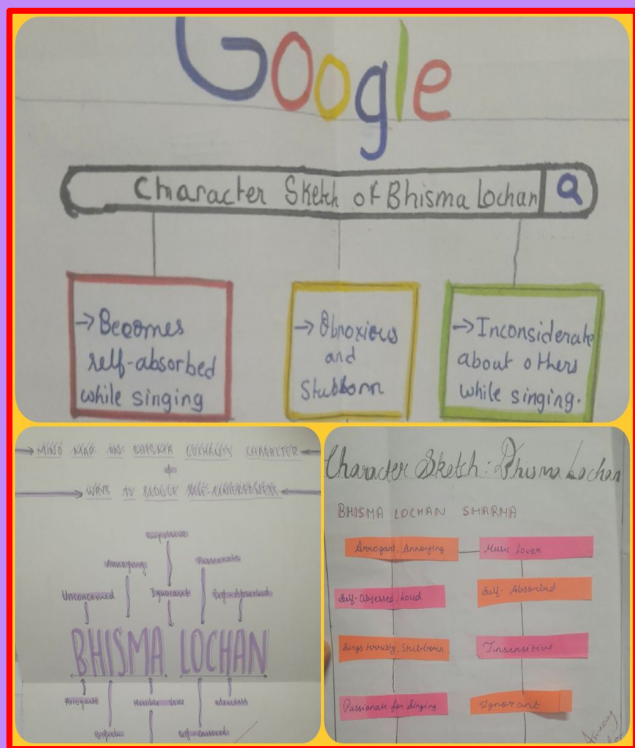 Google
Character Sketch of Bhisma Lochan
→Becomes
self-absorbed
while singing
→Obnoxious
and
Stubborn
→Inconsiderate
about others
while singing.
CHARACTER
Unconcerned
Annoying
Ignorant
Passionate
Self-absorbed
BHISMA LOCHAN
Arrogant
Character Sketch: Bhisma Lochan
BHISMA LOCHAN SHARMA
Arrogant, Annoying
Music Lover
Self-Obsessed, Loud
Self-Absorbed
Sings terribly, Stubborn
Insensitive
Passionate for Singing
Ignorant